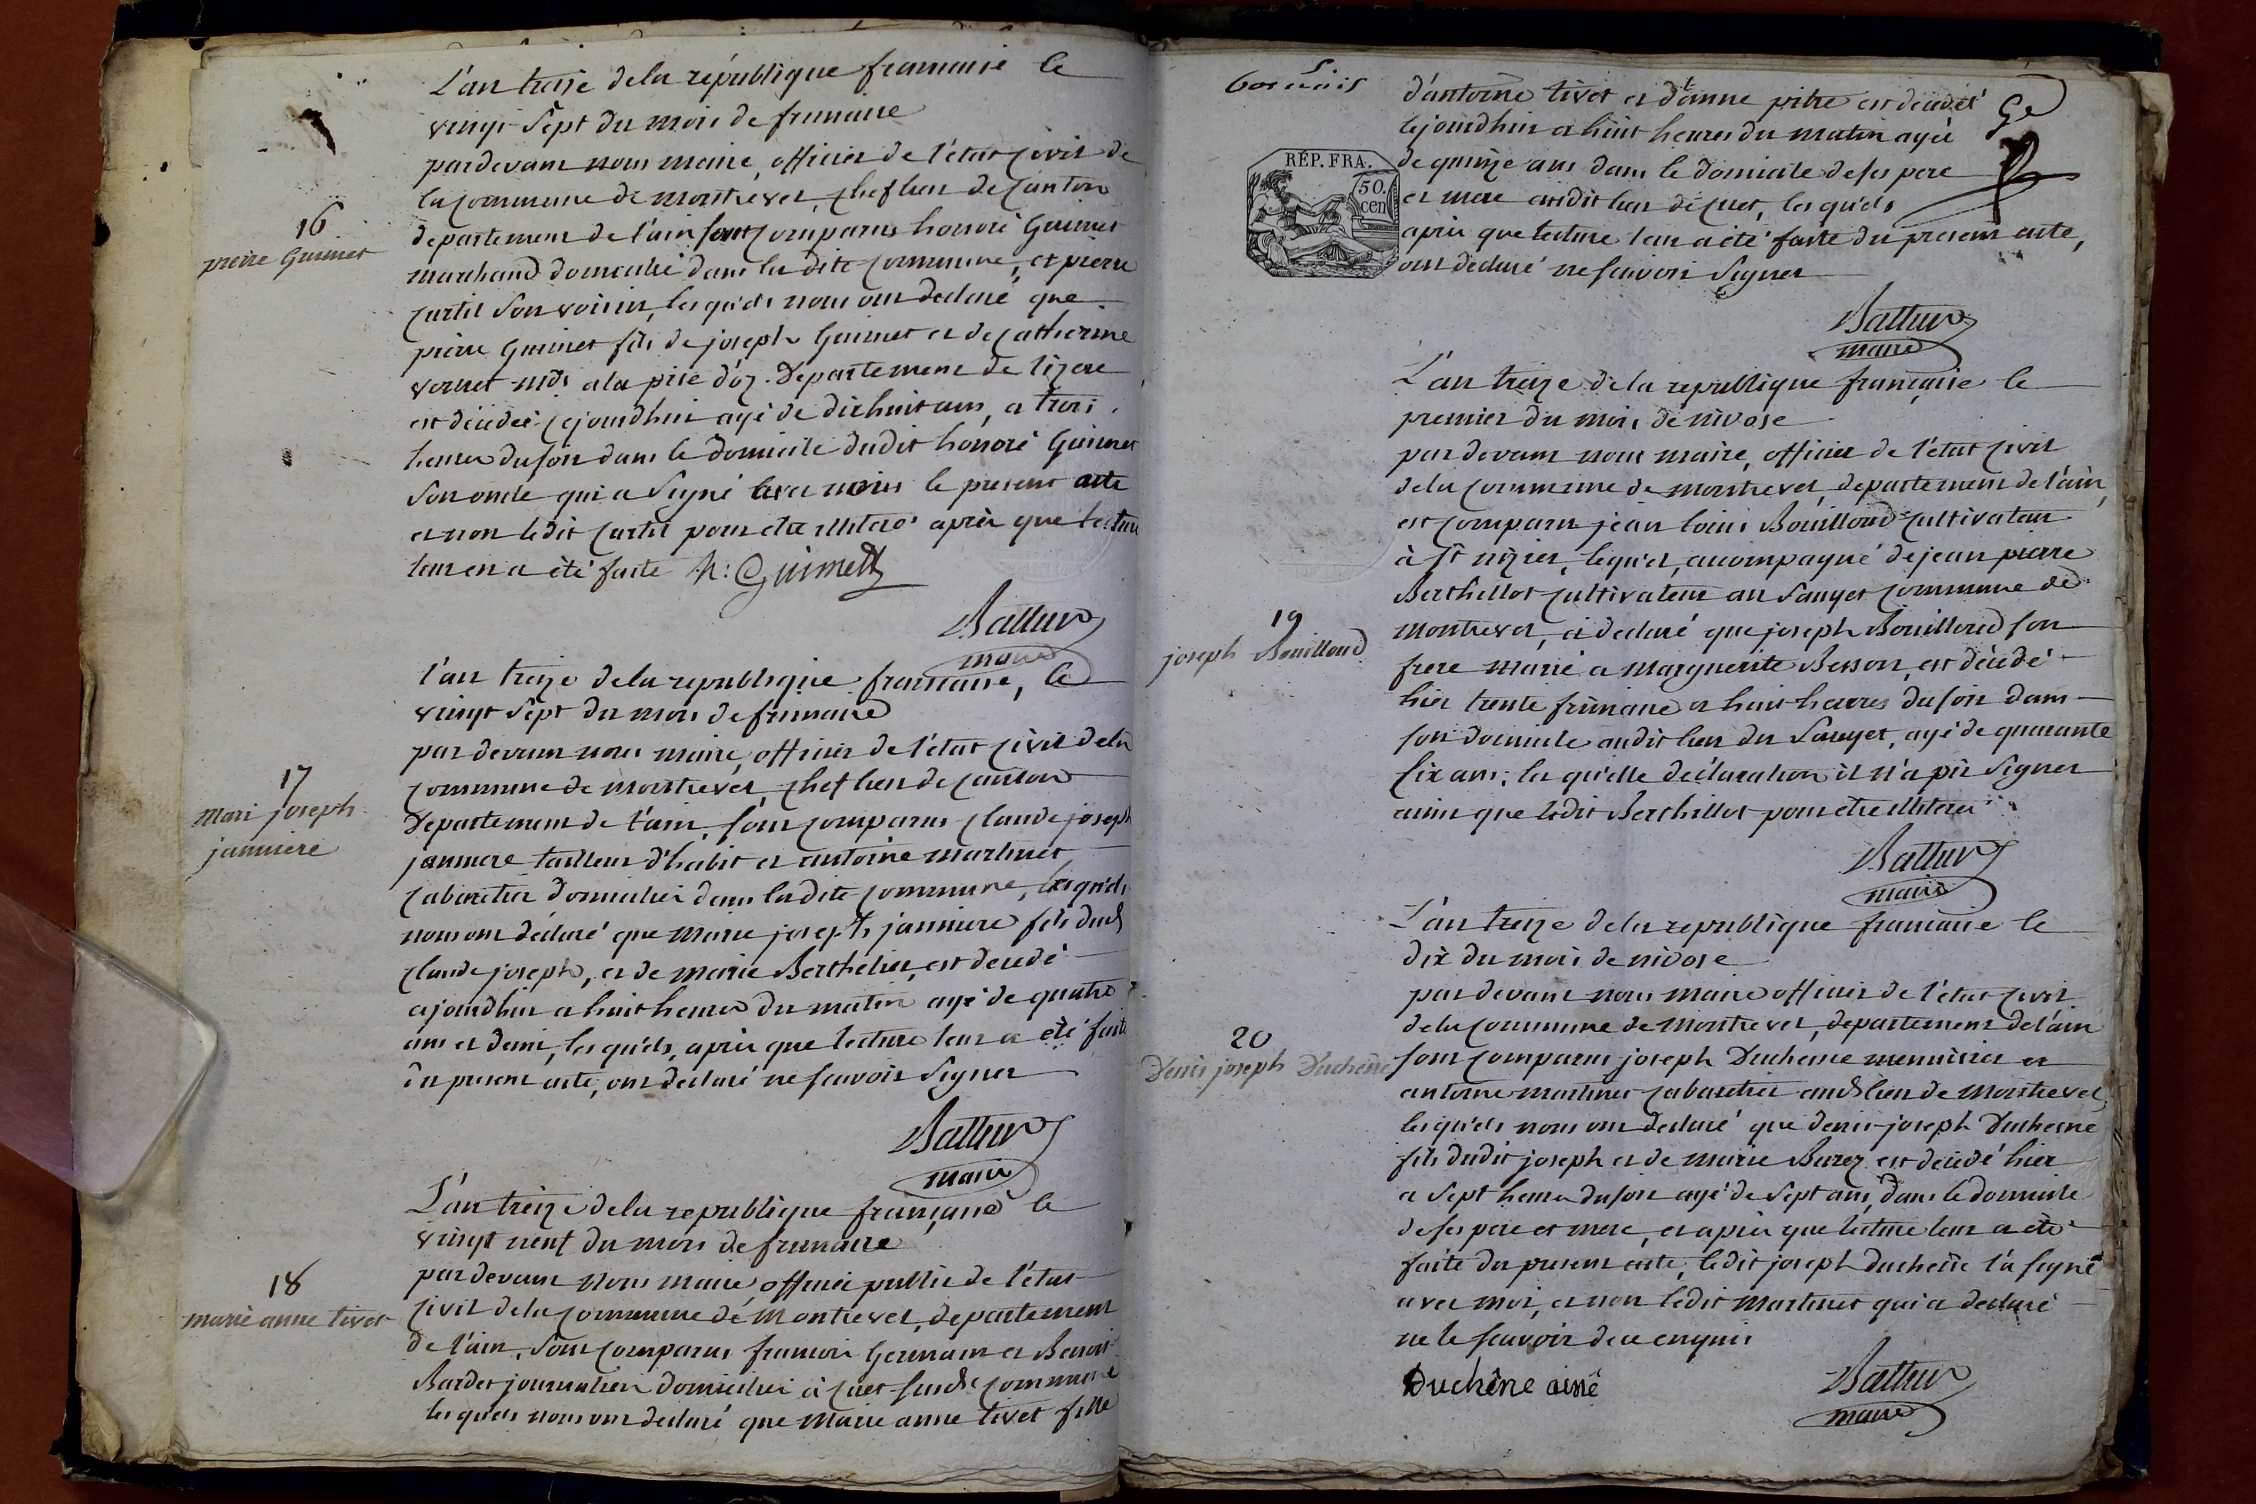 L'an treize de la république francaise le
vingt sept du mois de frimaire
pardevant nous maire, officier de l'état civil de
la commune de montrevel, chef lieu de canton
16
pierre Guimet
departement de l'ain sont comparus honoré Guimet
marchand domicilié dans la dite commune, et pierre
curtil son voisin, les quels nous ont declaré que
pierre Guimet fils de joseph Guimet et de catherine
vernet a la d'oz. departement de l'izere
est décédé cejourdhui agé de dixhuit ans, a trois
heures du soir dans le domicile dudit honoré Guimet
son oncle qui a signé avec nous le present acte
et non ledit curtil pour etre illiteré après que lecture
leur en a été faite h: Guimet
Battur
maire
L'an treize de la republique francaise, le
vingt sept du mois de frimaire
par devant nous maire, officier de l'état civil de la
17
mari joseph
janniere
commune de montrevel, chef lieu de canton
departement de l'ain, sont comparus claude joseph
janniere tailleur d'habit et antoine martinet
cabaretier domiciliés dans la dite commune, lesquels
nous ont déclaré que marie joseph janniere fils dud
claude joseph, et de marie Berthelier, est decedé
cejourdhui a huit heures du matin agé de quatre
ans et demi, les quels, après que lecture leur a été faite
du present acte, ont declaré ne scavoir signer
Battur
maire
L'an treize de la republique francaise le
vingt neuf du mois de frimaire
18
marie anne tivet
par devant nous maire, officier public de l'état
civil de la commune de Montrevel, departement
de l'ain, sont comparus francois Germain et Benoit
Bardet journaliers domiciliés à cuet susdte commune
les quels nous ont declaré que Marie anne tivet fille
d'antoine tivet et d'anne pitre est decedée
cejourdhui a huit heures du matin agée
de quinze ans dans le domicile de ses pere
et mere audit lieu de cuet, les quels
après que lecture leur a été faite du present acte,
ont declaré ne scavoir signer
RÉP. FRA.
50.
cen
Battur
maire
L'an treize de la republique française le
premier du mois de nivose
par devant nous maire, officier de l'état civil
de la commune de montrevel, departement de l'ain,
est comparu jean louis Bouilloud cultivateur
à St nizier, lequel, accompagné de jean pierre
Berthellot cultivateur au Sauget commune de
19
joseph Bouilloud
montrevel, a declaré que joseph Bouilloud son
frere marié a Marguerite Besson, est décédé
hier trente frimaire a huit heures du soir dans
son domicile audit lieu du Sauget, agé de quarante
six ans; la quelle déclaration il n'a pû signer
ainsi que ledit Berthillot pour etre illiteré
Battur
maire
L'an treize de la republique francaise le
dix du mois de nivose
par devant nous maire officier de l'état civil
de la commune de Montrevel, departement de l'ain
20
Denis joseph Duchêne
sont comparus joseph Duchesne menuisier et
antoine martinet cabaretier aud. lieu de Montrevel,
lesquels nous ont declaré que denis joseph Duchesne
fils dudit joseph et de marie Burez est decedé hier
a sept heures du soir agé de sept ans, dans le domicile
de ses pere et mere, et après que lecture leur a été
faite du present acte, ledit joseph duchesne l'a signé
avec moi, et non ledit Martinet qui a declaré
ne le scavoir de ce enquis
Duchêne ainé
Battur
maire